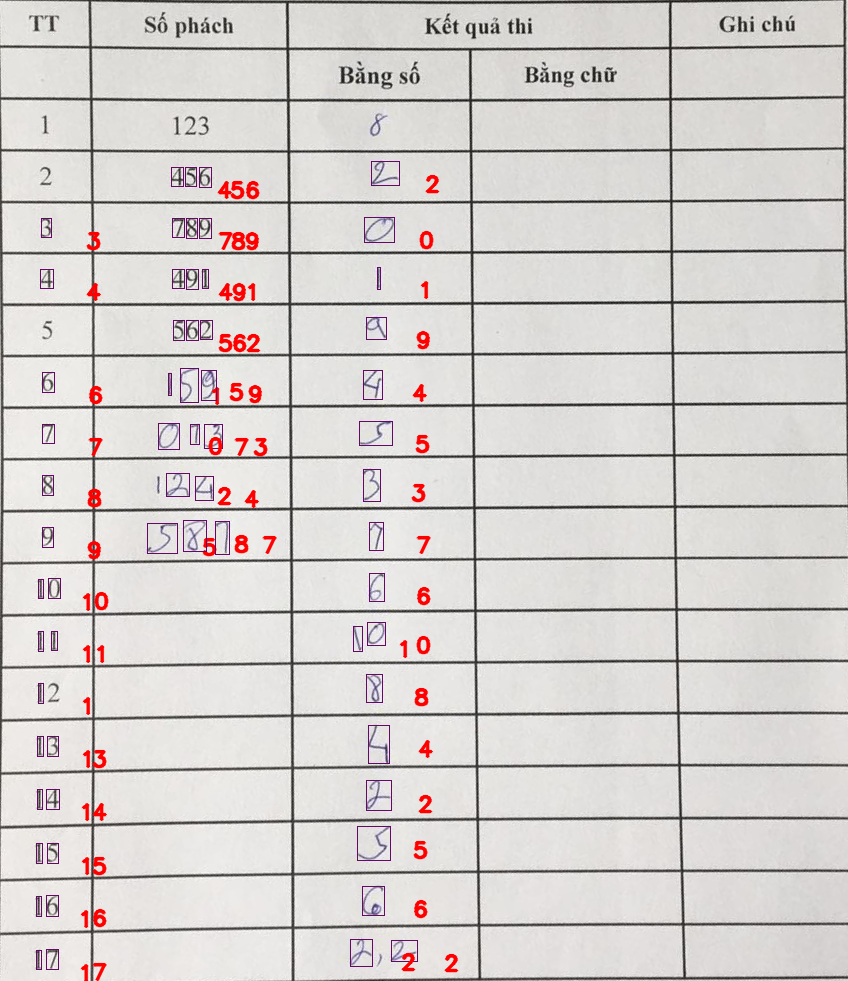 TT Số phách Kết quả thi Ghi chú
Bằng số Bằng chữ
1 123 8
2 456 456 2 2
3 3 789 789 0 0
4 4 491 491 1 1
5 562 562 9 9
6 6 159 1 5 9 4 4
7 7 0 73 0 7 3 5 5
8 8 124 2 4 3 3
9 9 587 5 8 7 7 7
10 10 6 6
11 11 10 1 0
12 1 8 8
13 13 4 4
14 14 2 2
15 15 5 5
16 16 6 6
17 17 2,2 2 2